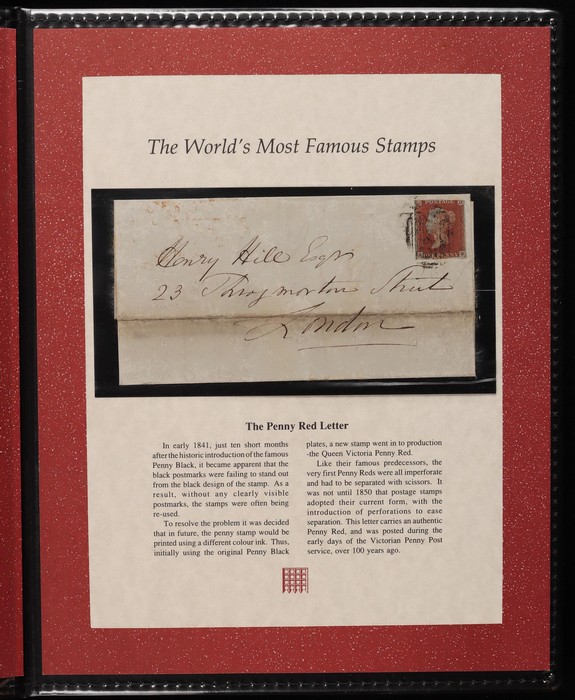 The World's Most Famous Stamps
POSTAGE
ONE PENNY
Henry Hill Esqr
23 Throgmorton Street
London
The Penny Red Letter
In early 1841, just ten short months
after the historic introduction of the famous
Penny Black, it became apparent that the
black postmarks were failing to stand out
from the black design of the stamp. As a
result, without any clearly visible
postmarks, the stamps were often being
re-used.
To resolve the problem it was decided
that in future, the penny stamp would be
printed using a different colour ink. Thus,
initially using the original Penny Black
plates, a new stamp went in to production
-the Queen Victoria Penny Red.
Like their famous predecessors, the
very first Penny Reds were all imperforate
and had to be separated with scissors. It
was not until 1850 that postage stamps
adopted their current form, with the
introduction of perforations to ease
separation. This letter carries an authentic
Penny Red, and was posted during the
early days of the Victorian Penny Post
service, over 100 years ago.